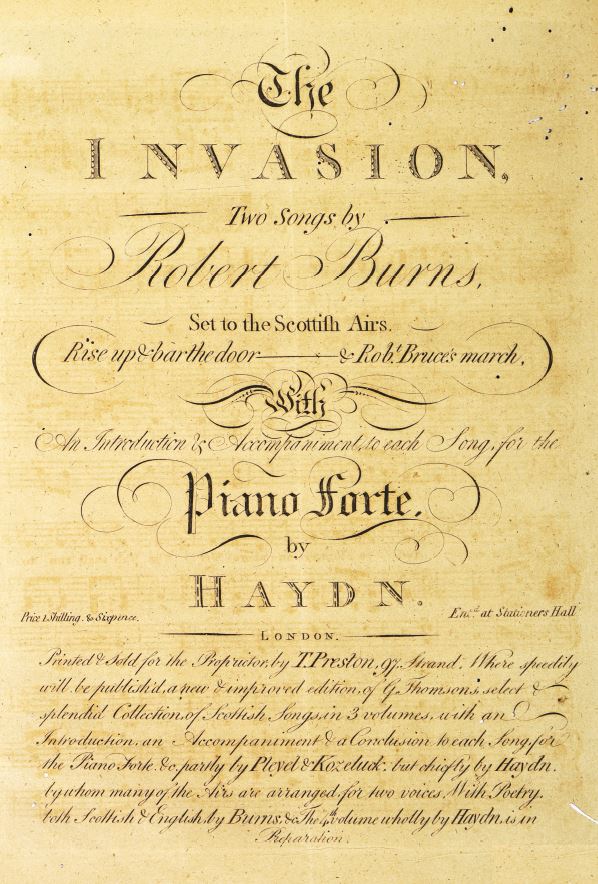 The
INVASION,
Two Songs by
Robert Burns,
Set to the Scottiſh Airs.
Rise up & bar the door — & Rob.t Bruce's march,
With
An Introduction & Accompaniment, to each Song, for the
Piano Forte.
by
HAYDN.
Price 1 Shilling. & Sixpence.
Ent.d at Stationers Hall
LONDON.
Printed & Sold for the Proprietor, by T. Preston, 97. Strand. Where speedily
will be publish'd, a new & improved edition, of G. Thomson's, select &
splendid Collection, of Scottish Songs, in 3 volumes, with an
Introduction, an Accompaniment & a Conclusion to each Song, for
the Piano Forte. &c. partly by Pleyel & Kozeluck. but chiefly by Haydn.
by whom many of the Airs are arranged, for two voices, With Poetry,
both Scottish & English, by Burns, &c. The 4th volume wholly by Haydn, is in
Preparation.